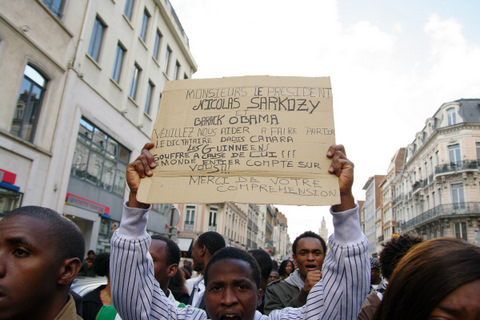 MONSIEURS LE PRESIDENT
NICOLAS SARKOZY
BARACK OBAMA
VEUILLEZ NOUS AIDER A FAIRE PARTIR
LE DICTATEUR DADIS CAMARA
LES GUINNEENS
SOUFFRE A CAUSE DE LUI !!!
LE MONDE ENTIER COMPTE SUR
VOUS !!!
MERCI DE VOTRE
COMPREHENSION